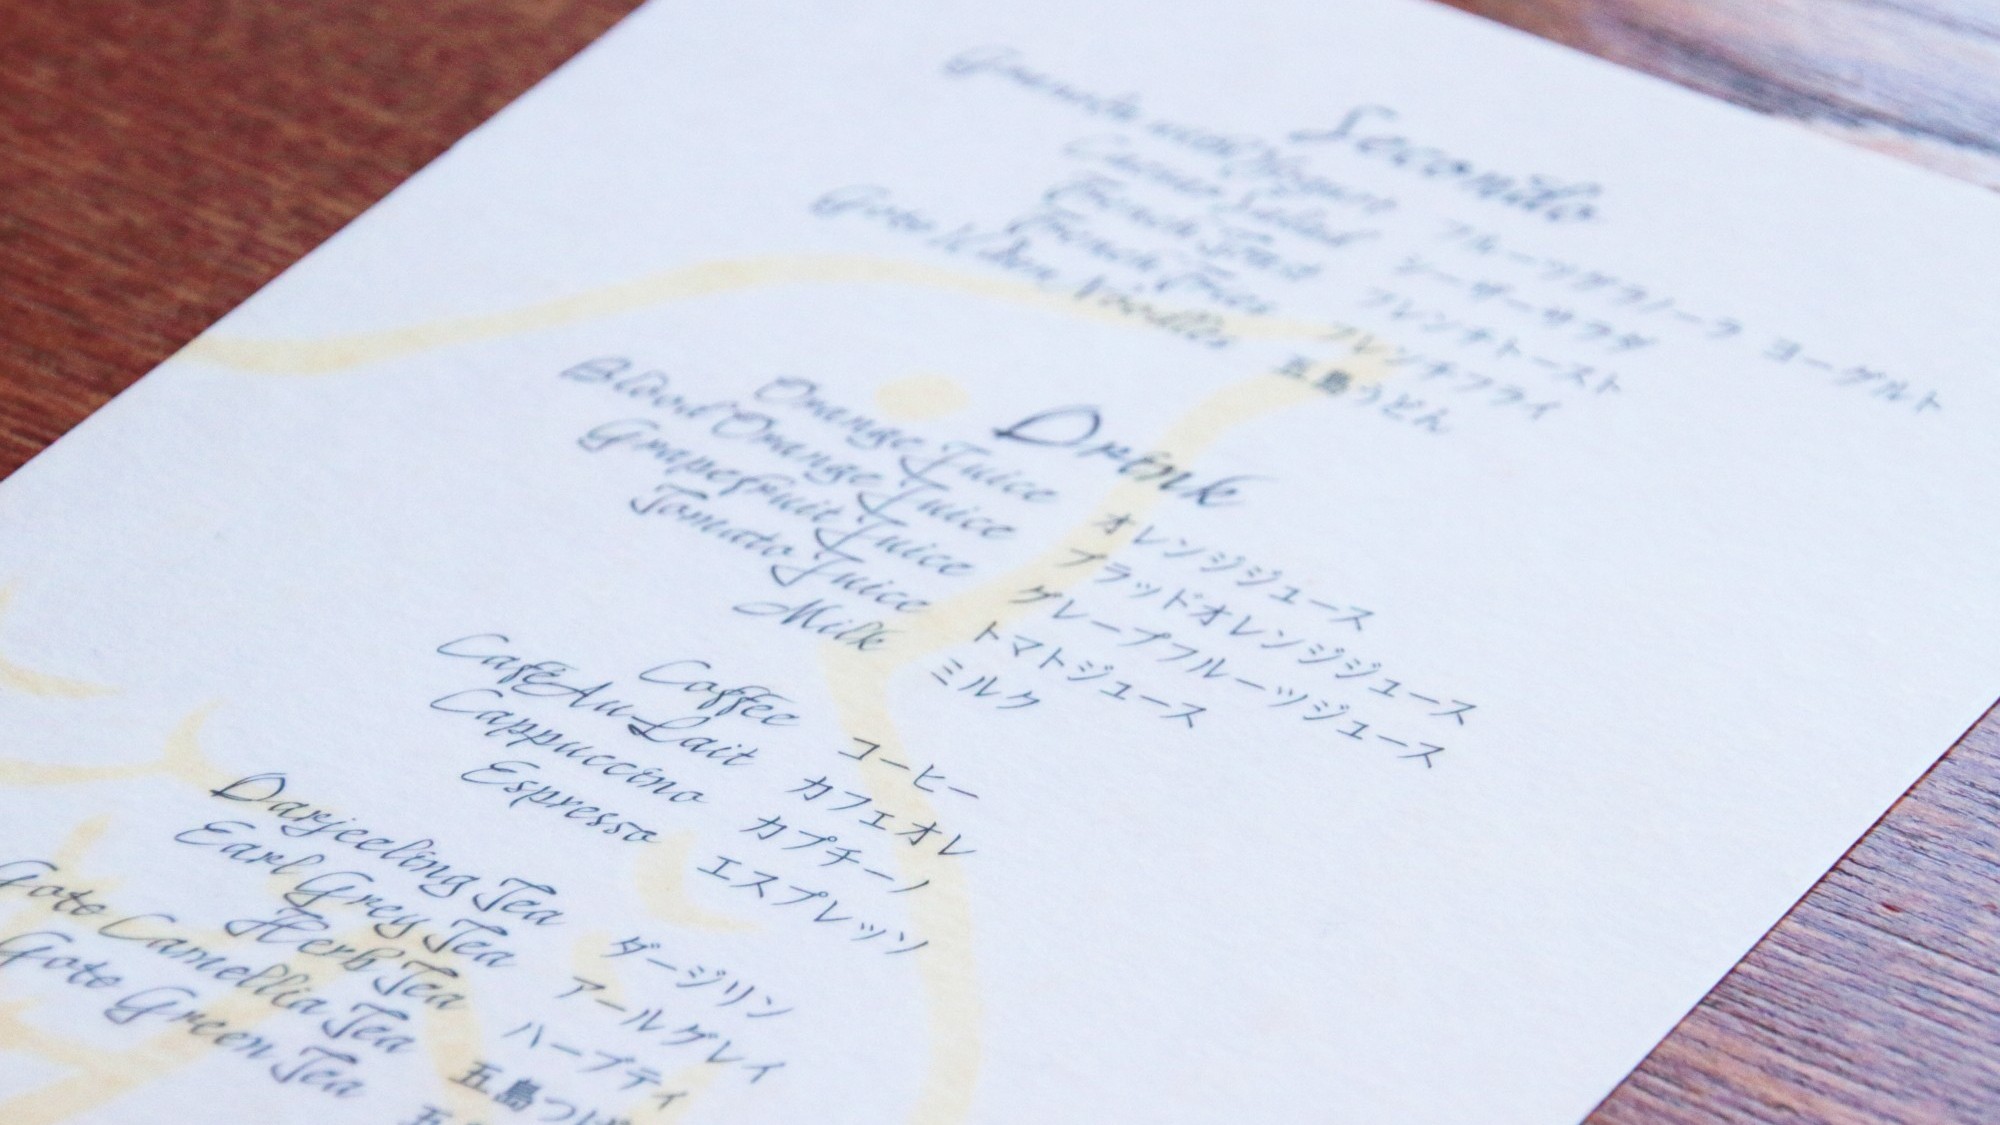 Secondo
Granola and Yogurt フルーツグラノーラ ヨーグルト
Caesar Salad シーザーサラダ
French Toast フレンチトースト
French Fries フレンチフライ
Goto Udon Noodles 五島うどん
Drink
Orange Juice オレンジジュース
Blood Orange Juice ブラッドオレンジジュース
Grapefruit Juice グレープフルーツジュース
Tomato Juice トマトジュース
Milk ミルク
Coffee コーヒー
Café Au Lait カフェオレ
Cappuccino カプチーノ
Espresso エスプレッソ
Darjeeling Tea ダージリン
Earl Grey Tea アールグレイ
Herb Tea ハーブティ
Goto Camellia Tea 五島つば
Goto Green Tea 五